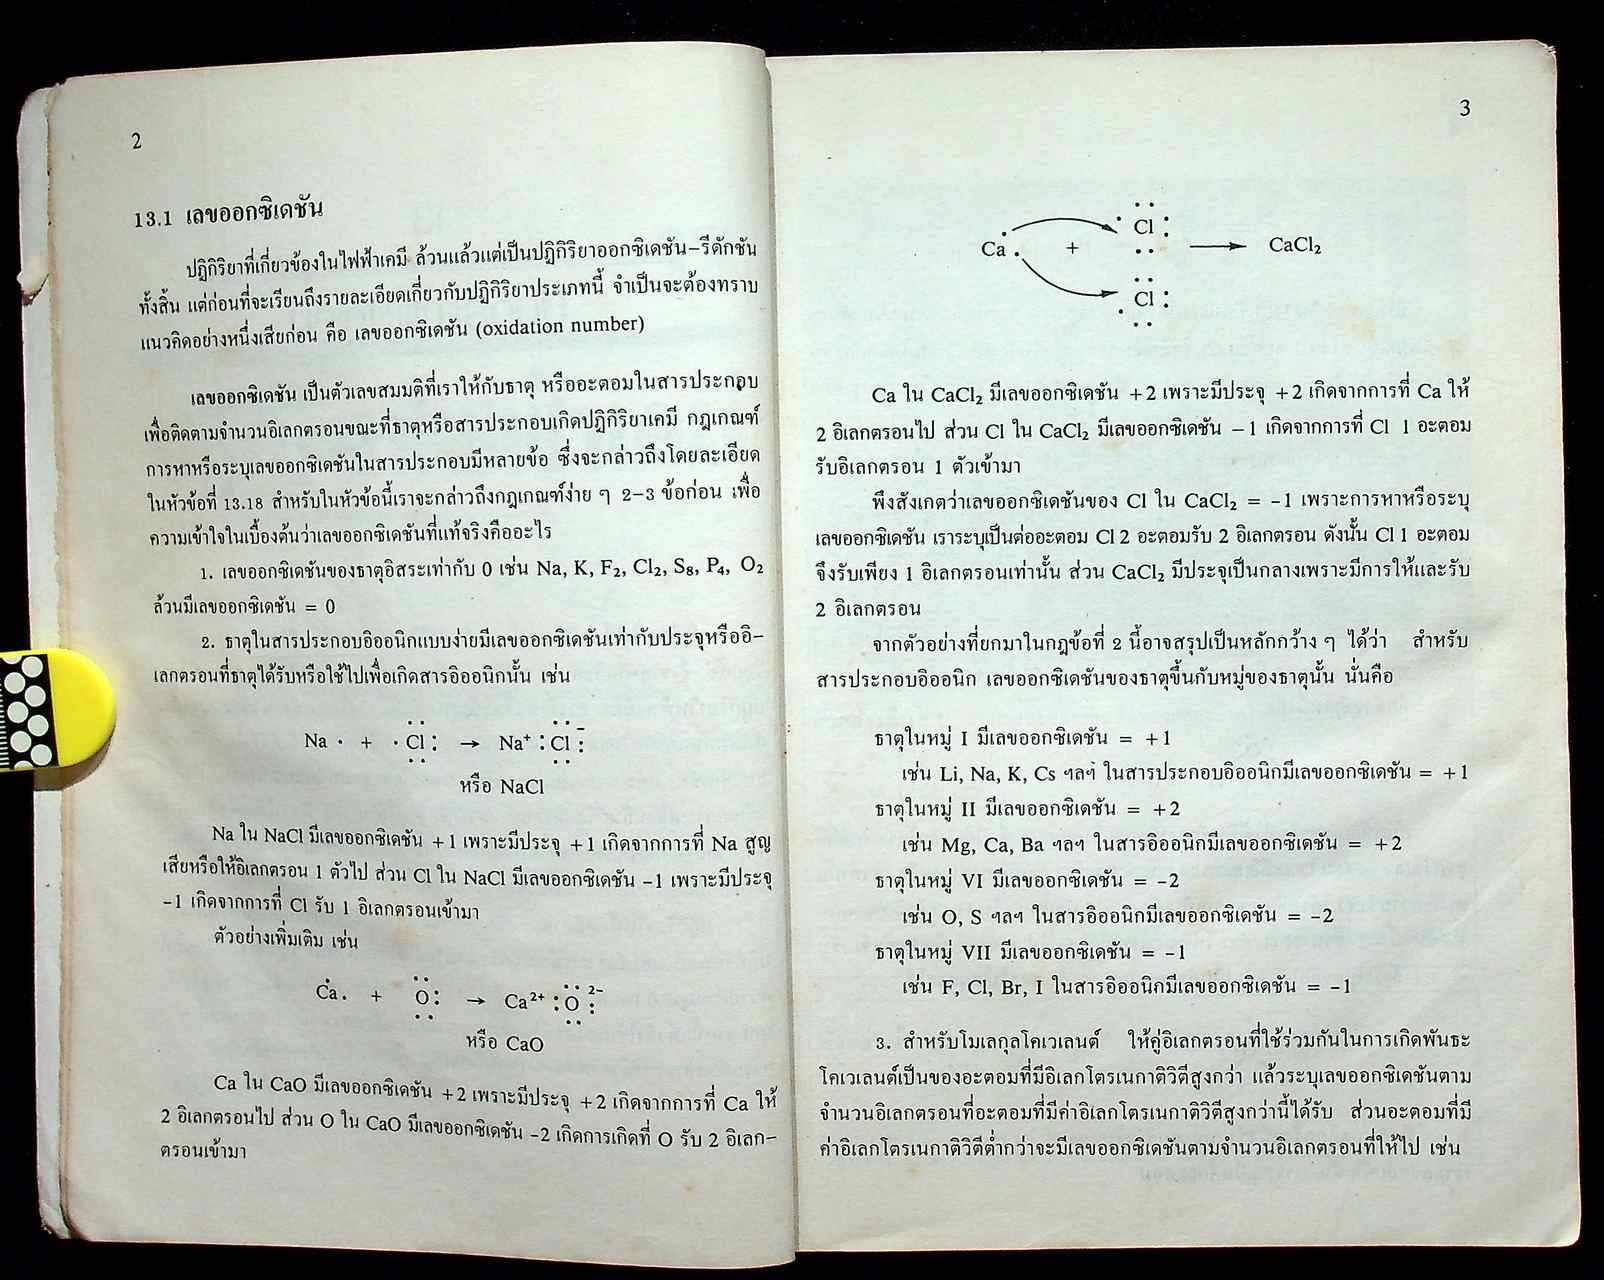 2
13.1 เลขออกซิเดชัน
ปฏิกิริยาที่เกี่ยวข้องในไฟฟ้าเคมี ล้วนแล้วแต่เป็นปฏิกิริยาออกซิเดชัน–รีดักชัน
ทั้งสิ้น แต่ก่อนที่จะเรียนถึงรายละเอียดเกี่ยวกับปฏิกิริยาประเภทนี้ จำเป็นจะต้องทราบ
แนวคิดอย่างหนึ่งเสียก่อน คือ เลขออกซิเดชัน (oxidation number)
เลขออกซิเดชัน เป็นตัวเลขสมมติที่เราให้กับธาตุ หรืออะตอมในสารประกอบ
เพื่อติดตามจำนวนอิเลกตรอนขณะที่ธาตุหรือสารประกอบเกิดปฏิกิริยาเคมี กฎเกณฑ์
การหาหรือระบุเลขออกซิเดชันในสารประกอบมีหลายข้อ ซึ่งจะกล่าวถึงโดยละเอียด
ในหัวข้อที่ 13.18 สำหรับในหัวข้อนี้เราจะกล่าวถึงกฎเกณฑ์ง่าย ๆ 2–3 ข้อก่อน เพื่อ
ความเข้าใจในเบื้องต้นว่าเลขออกซิเดชันที่แท้จริงคืออะไร
1. เลขออกซิเดชันของธาตุอิสระเท่ากับ 0 เช่น Na, K, F₂, Cl₂, S₈, P₄, O₂
ล้วนมีเลขออกซิเดชัน = 0
2. ธาตุในสารประกอบอิออนิกแบบง่ายมีเลขออกซิเดชันเท่ากับประจุหรืออิ–
เลกตรอนที่ธาตุได้รับหรือใช้ไปเพื่อเกิดสารอิออนิกนั้น เช่น
Na · + · Cl : → Na⁺ : Cl :⁻
หรือ NaCl
Na ใน NaCl มีเลขออกซิเดชัน +1 เพราะมีประจุ +1 เกิดจากการที่ Na สูญ
เสียหรือให้อิเลกตรอน 1 ตัวไป ส่วน Cl ใน NaCl มีเลขออกซิเดชัน -1 เพราะมีประจุ
-1 เกิดจากการที่ Cl รับ 1 อิเลกตรอนเข้ามา
ตัวอย่างเพิ่มเติม เช่น
Ca · + O : → Ca²⁺ : O :²⁻
หรือ CaO
Ca ใน CaO มีเลขออกซิเดชัน +2 เพราะมีประจุ +2 เกิดจากการที่ Ca ให้
2 อิเลกตรอนไป ส่วน O ใน CaO มีเลขออกซิเดชัน -2 เกิดการเกิดที่ O รับ 2 อิเลก–
ตรอนเข้ามา
3
Cl :
Ca : + → CaCl₂
Cl :
Ca ใน CaCl₂ มีเลขออกซิเดชัน +2 เพราะมีประจุ +2 เกิดจากการที่ Ca ให้
2 อิเลกตรอนไป ส่วน Cl ใน CaCl₂ มีเลขออกซิเดชัน −1 เกิดจากการที่ Cl 1 อะตอม
รับอิเลกตรอน 1 ตัวเข้ามา
พึงสังเกตว่าเลขออกซิเดชันของ Cl ใน CaCl₂ = -1 เพราะการหาหรือระบุ
เลขออกซิเดชัน เราระบุเป็นต่ออะตอม Cl 2 อะตอมรับ 2 อิเลกตรอน ดังนั้น Cl 1 อะตอม
จึงรับเพียง 1 อิเลกตรอนเท่านั้น ส่วน CaCl₂ มีประจุเป็นกลางเพราะมีการให้และรับ
2 อิเลกตรอน
จากตัวอย่างที่ยกมาในกฎข้อที่ 2 นี้อาจสรุปเป็นหลักกว้าง ๆ ได้ว่า สำหรับ
สารประกอบอิออนิก เลขออกซิเดชันของธาตุขึ้นกับหมู่ของธาตุนั้น นั่นคือ
ธาตุในหมู่ I มีเลขออกซิเดชัน = +1
เช่น Li, Na, K, Cs ฯลฯ ในสารประกอบอิออนิกมีเลขออกซิเดชัน = +1
ธาตุในหมู่ II มีเลขออกซิเดชัน = +2
เช่น Mg, Ca, Ba ฯลฯ ในสารอิออนิกมีเลขออกซิเดชัน = +2
ธาตุในหมู่ VI มีเลขออกซิเดชัน = -2
เช่น O, S ฯลฯ ในสารอิออนิกมีเลขออกซิเดชัน = -2
ธาตุในหมู่ VII มีเลขออกซิเดชัน = -1
เช่น F, Cl, Br, I ในสารอิออนิกมีเลขออกซิเดชัน = -1
3. สำหรับโมเลกุลโคเวเลนต์ ให้คู่อิเลกตรอนที่ใช้ร่วมกันในการเกิดพันธะ
โคเวเลนต์เป็นของอะตอมที่มีอิเลกโตรเนกาติวิตีสูงกว่า แล้วระบุเลขออกซิเดชันตาม
จำนวนอิเลกตรอนที่อะตอมที่มีค่าอิเลกโตรเนกาติวิตีสูงกว่านี้ได้รับ ส่วนอะตอมที่มี
ค่าอิเลกโตรเนกาติวิตีต่ำกว่าจะมีเลขออกซิเดชันตามจำนวนอิเลกตรอนที่ให้ไป เช่น